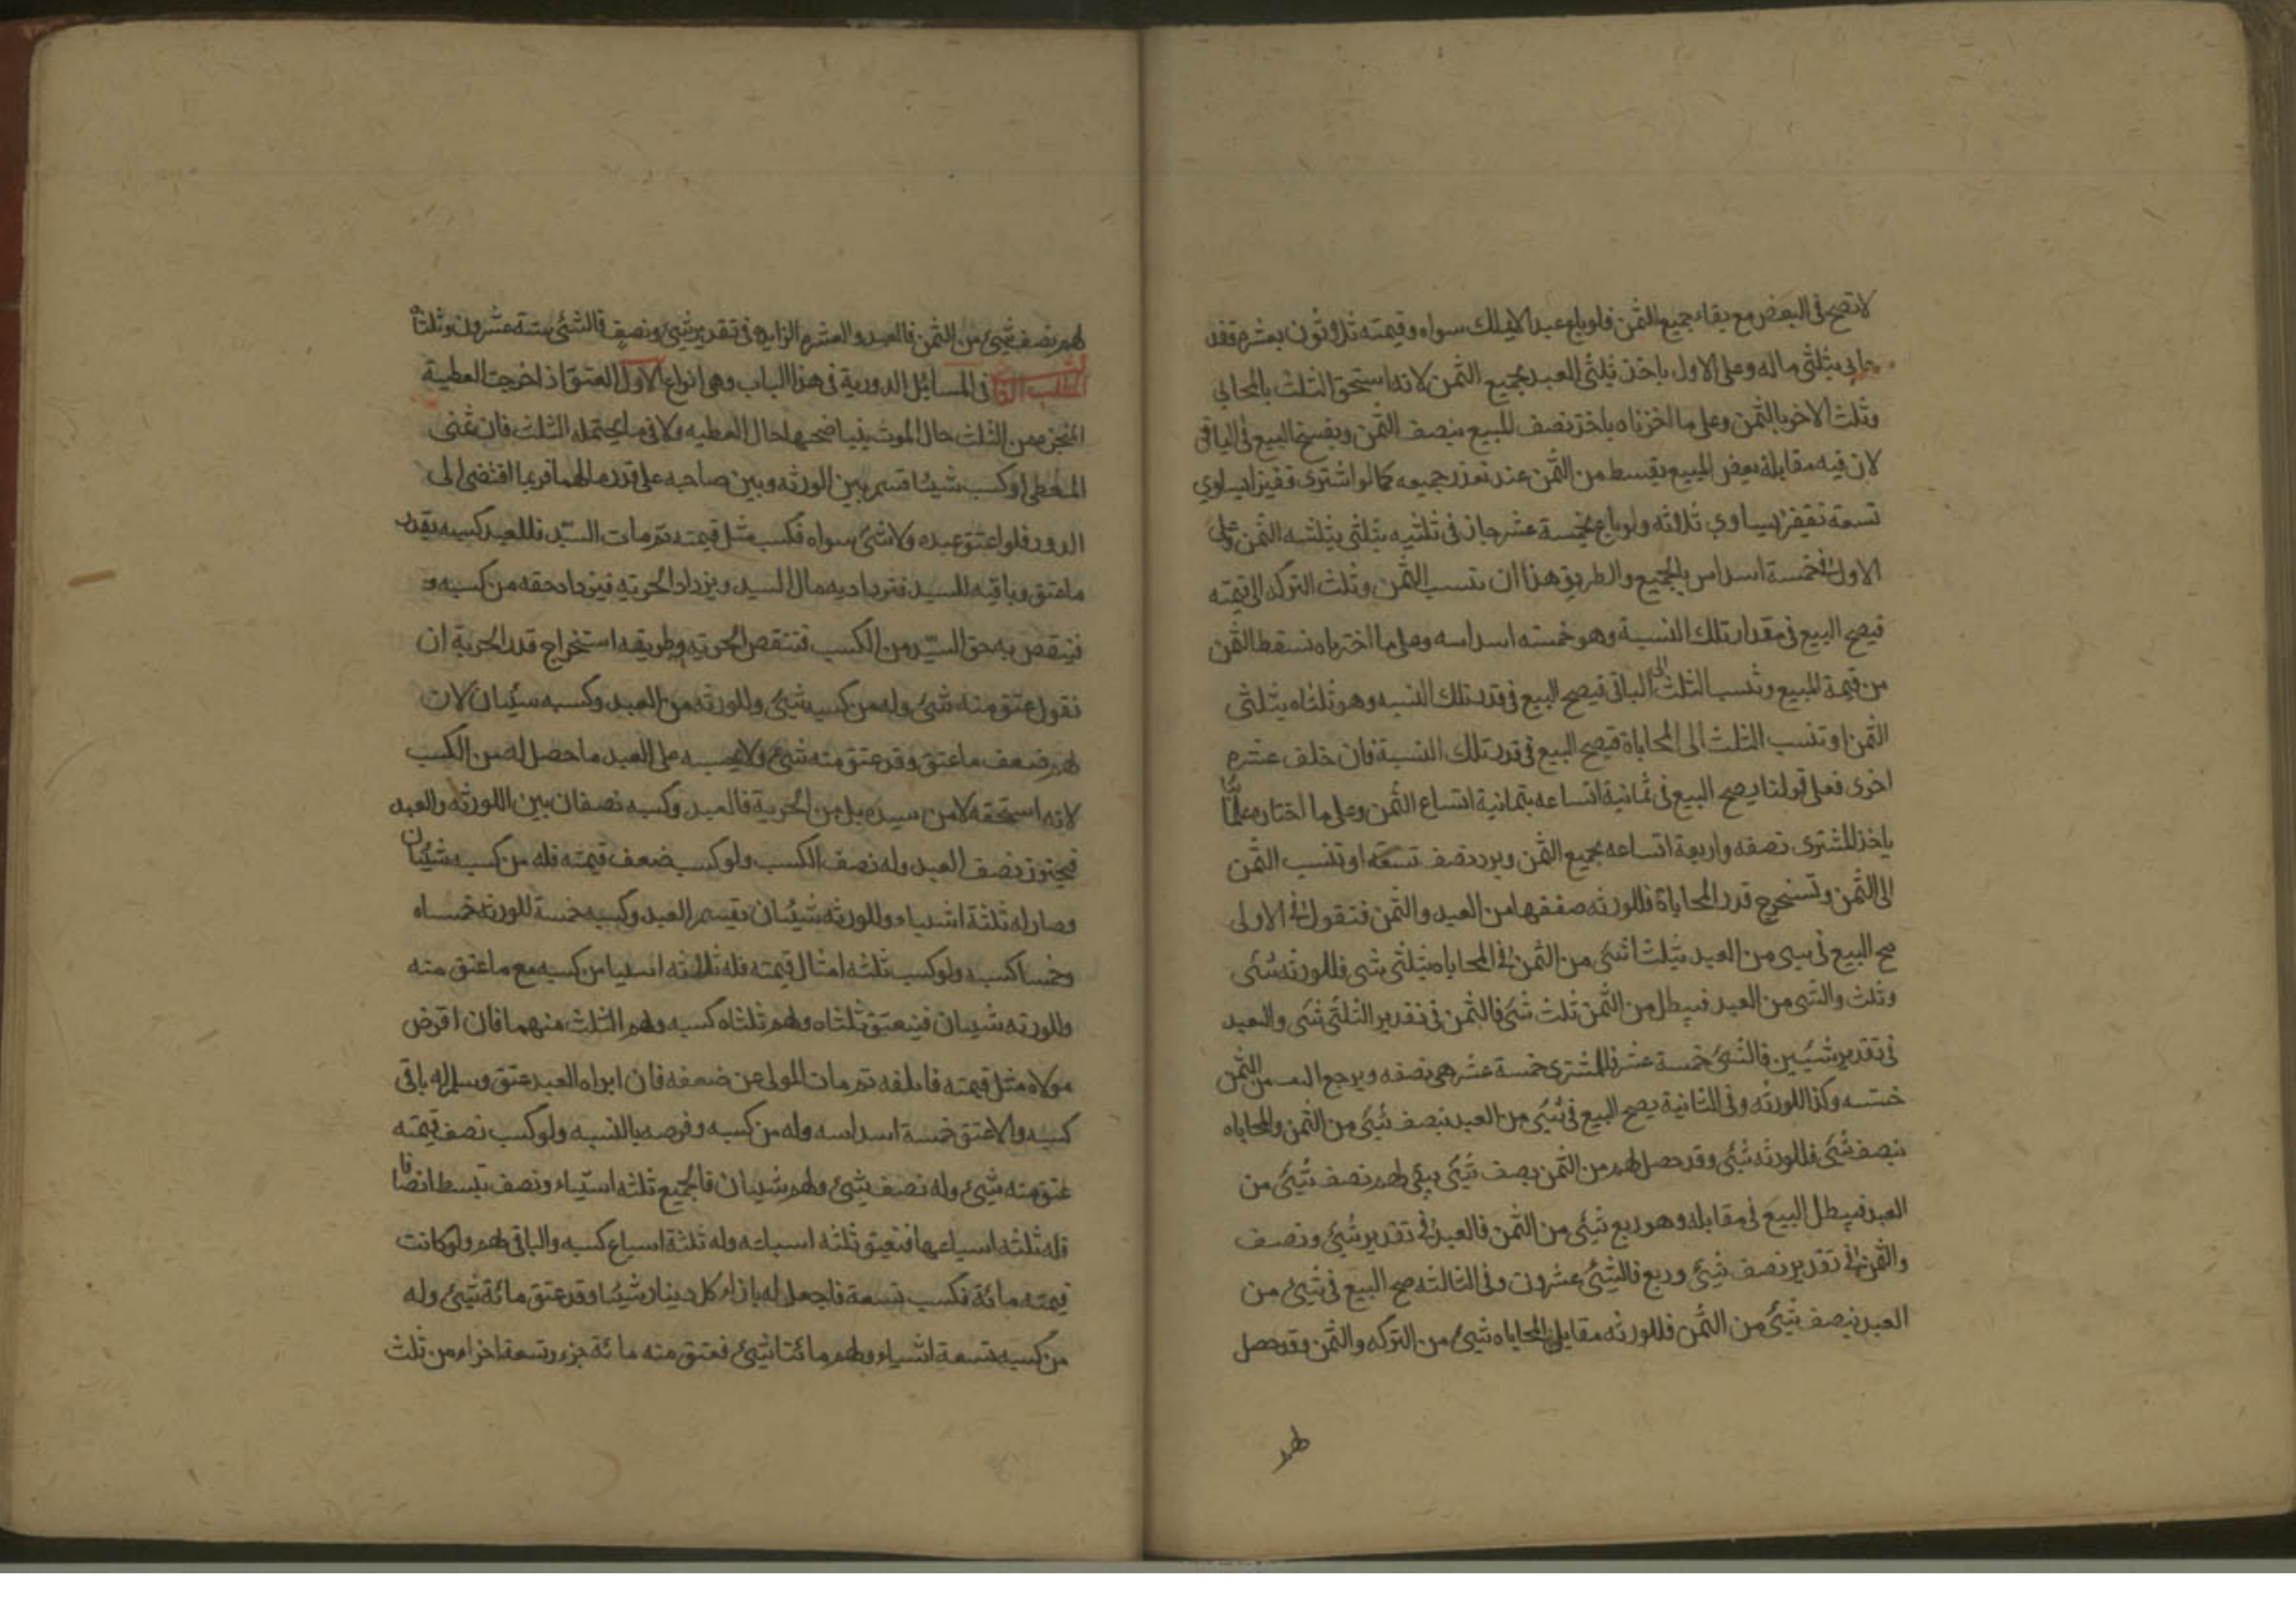 لا تصح في البعض مع بقاء جميع الثمن فلو باع عبدا لا يملك سواه وقيمته ثلاثون بعشرة فقد
حابى بثلثي ماله وعلى الاول ياخذ ثلثي العبد بجميع الثمن لانه استحق الثلث بالمحاباة
وثلث الاخر بالثمن وعلى ما اخترناه ياخذ نصف المبيع بنصف الثمن ويفسخ البيع في الباقي
لان فيه مقابلة بعض المبيع بقسط من الثمن عند تعذر جميعه كما لو اشترى قفيزا يساوي
تسعة بقفيز يساوي ثلاثة ولو باع بخمسة عشر جاز في ثلثيه بثلثي بثلثه الثمن وعلى
الاول في خمسة اسداس بالجميع والطريق هذا ان تنسب الثمن وثلث التركه الى قيمته
فيصح البيع في مقدار تلك النسبة وهو خمسه اسداسه وعلى ما اخترناه نسقط الثمن
من قيمة المبيع وتنسب الثلث الى الباقي فيصح البيع في قدر تلك النسبه وهو ثلثاه بثلثي
الثمن او تنسب الثلث الى المحاباة فيصح البيع في قدر تلك النسبة فان خلف عشره
اخرى فعلى قولنا يصح البيع في ثمانية اتساعه بثمانية اتساع الثمن وعلى ما اختاره علمائنا
ياخذ المشترى نصفه واربعة اتساعه بجميع الثمن ويرد نصف تسعه او تنسب الثمن
الى الثمن وتستخرج قدر المحاباة فللورثه ضعفها من العبد والثمن فتقول في الاولى
صح البيع في شى من العبد بثلث شى من الثمن في المحاباه بثلثي شى فللورثه شى
وثلث والشى من العبد فيبطل من الثمن ثلث شى فالثمن في تقدير الثلثي شى والعبد
في تقدير شيئين فالشئ خمسة عشر فللمشترى خمسة عشر هي نصفه ويرجع اليه من الثمن
خمسه وكذا للورثه وفي الثانية يصح البيع في شئ من العبد بنصف شئ من الثمن والمحاباه
بنصف شئ فللورثه شئ وقد حصل لهم من الثمن نصف شئ يبقى لهم نصف شئ من
العبد فيبطل البيع في مقابله وهو ربع شئ من الثمن فالعبد في تقدير شئ ونصف
والثمن في تقدير نصف شئ وربع فالشئ عشرون وفي الثالثه صح البيع في شئ من
العبد بنصف شئ من الثمن فللورثه مقابل المحاباه شئ من التركه والثمن وقد حصل
لهم
لهم نصف شئ من الثمن فالعبد والعشره الزايده في تقدير شئ ونصف فالشئ ستة عشرون وثلثاه
المطلب الثالث في المسائل الدورية في هذا الباب وهي انواع الاول العتق اذا خرجت العطية
المنجزه من الثلث حال الموت تبينا صحتها حال العطيه والا في ما يحتمله الثلث فان نمى
المعطى او كسب شيئا قسم بين الورثه وبين صاحبه على قدر مالهما فربما افضى الى
الدور فلو اعتق عبده ولا شئ سواه فكسب مثل قيمته ثم مات السيد فللعبد كسبه بقدر
ما عتق وباقيه للسيد فيزداد به مال السيد ويزداد الحريه فيزداد حقه من كسبه و
فينقص به حق السيد من الكسب فتنقص الحريه وطريقه استخراج قدر الحرية ان
نقول عتق منه شئ وله من كسبه شئ وللورثه من العبد وكسبه شيئان لان
لهم ضعف ما عتق وقد عتق منه شئ ولا يحسب على العبد ما حصل له من الكسب
لانه استحقه لا من سيده بل من الحرية فالعبد وكسبه نصفان بين الورثه والعبد
فيعتق نصف العبد وله نصف الكسب ولو كسب ضعف قيمته فله من كسبه شيئان
وصار له ثلثة اشياء وللورثه شيئان يقسم العبد وكسبه خمسة للورثه خمساه
وخمسا كسبه ولو كسب ثلثه امثال قيمته فله ثلاثه اشيا من كسبه مع ما عتق منه
وللورثه شيئان فيعتق ثلثاه ولهم ثلثاه كسبه ولهم الثلث منهما فان اقرض
مولاه مثل قيمته فاتلفه ثم مات المولى عن ضعفه فان ابراه العبد عتق وسلم له باقي
كسبه والا عتق خمسة اسداسه وله من كسبه وقرضه بالنسبه ولو كسب نصف قيمته
عتق منه شئ وله نصف شئ ولهم شيئان فالجميع ثلثه اشياء ونصف تبسط انصافا
فله ثلثه اسباعها فيعتق ثلثه اسباعه وله ثلثة اسباع كسبه والباقي لهم ولو كانت
قيمته مائة فكسب تسعة فاجعل له بازاء كل دينار شيئا وقد عتق مائة شئ وله
من كسبه تسعة اشياء ولهم مائتا شئ فعتق منه مائة جزء وتسعة اجزاء من ثلث